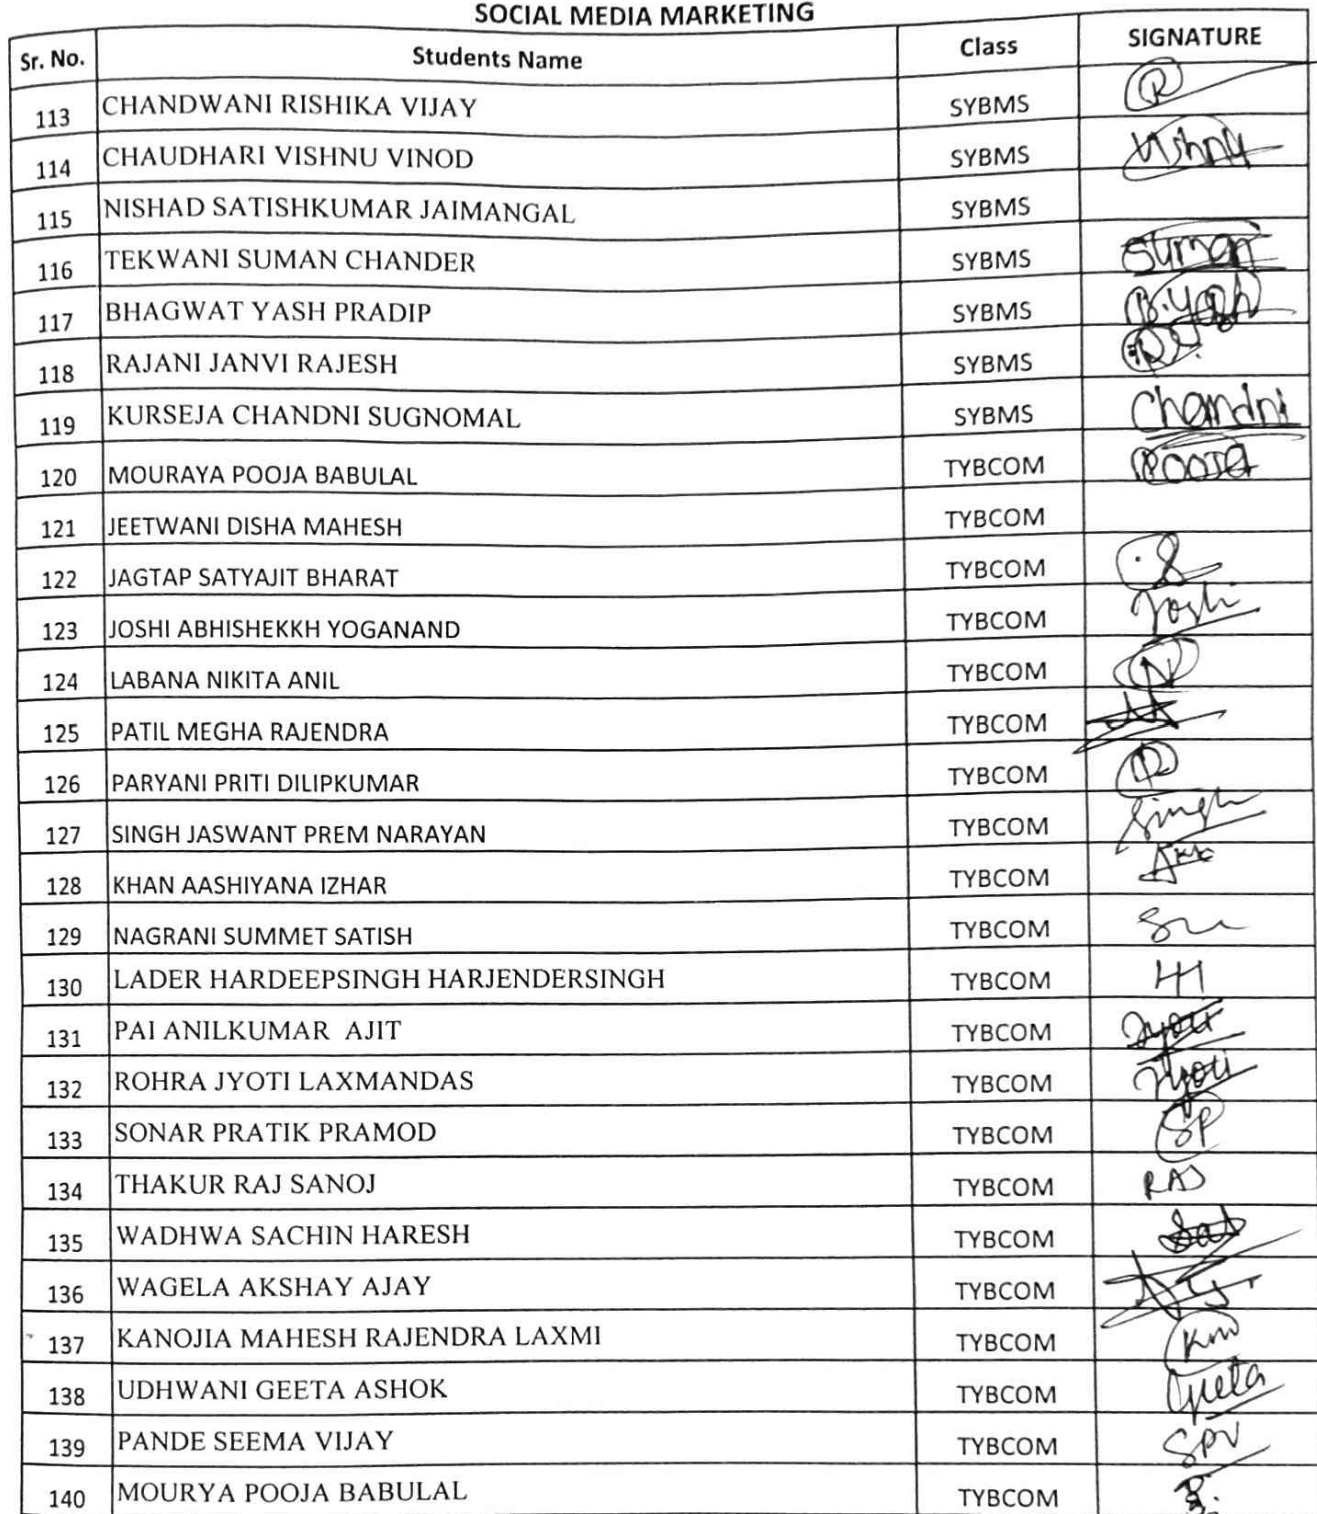 SOCIAL MEDIA MARKETING
Sr. No. Students Name Class SIGNATURE
113 CHANDWANI RISHIKA VIJAY SYBMS R
114 CHAUDHARI VISHNU VINOD SYBMS Vishnu
115 NISHAD SATISHKUMAR JAIMANGAL SYBMS
116 TEKWANI SUMAN CHANDER SYBMS Suman
117 BHAGWAT YASH PRADIP SYBMS B.Yash
118 RAJANI JANVI RAJESH SYBMS
119 KURSEJA CHANDNI SUGNOMAL SYBMS Chandni
120 MOURAYA POOJA BABULAL TYBCOM POOJA
121 JEETWANI DISHA MAHESH TYBCOM
122 JAGTAP SATYAJIT BHARAT TYBCOM
123 JOSHI ABHISHEKKH YOGANAND TYBCOM Joshi
124 LABANA NIKITA ANIL TYBCOM N
125 PATIL MEGHA RAJENDRA TYBCOM
126 PARYANI PRITI DILIPKUMAR TYBCOM P
127 SINGH JASWANT PREM NARAYAN TYBCOM Singh
128 KHAN AASHIYANA IZHAR TYBCOM
129 NAGRANI SUMMET SATISH TYBCOM
130 LADER HARDEEPSINGH HARJENDERSINGH TYBCOM
131 PAI ANILKUMAR AJIT TYBCOM Jyoti
132 ROHRA JYOTI LAXMANDAS TYBCOM Jyoti
133 SONAR PRATIK PRAMOD TYBCOM SP
134 THAKUR RAJ SANOJ TYBCOM RAJ
135 WADHWA SACHIN HARESH TYBCOM
136 WAGELA AKSHAY AJAY TYBCOM
137 KANOJIA MAHESH RAJENDRA LAXMI TYBCOM Km
138 UDHWANI GEETA ASHOK TYBCOM Geeta
139 PANDE SEEMA VIJAY TYBCOM SPV
140 MOURYA POOJA BABULAL TYBCOM